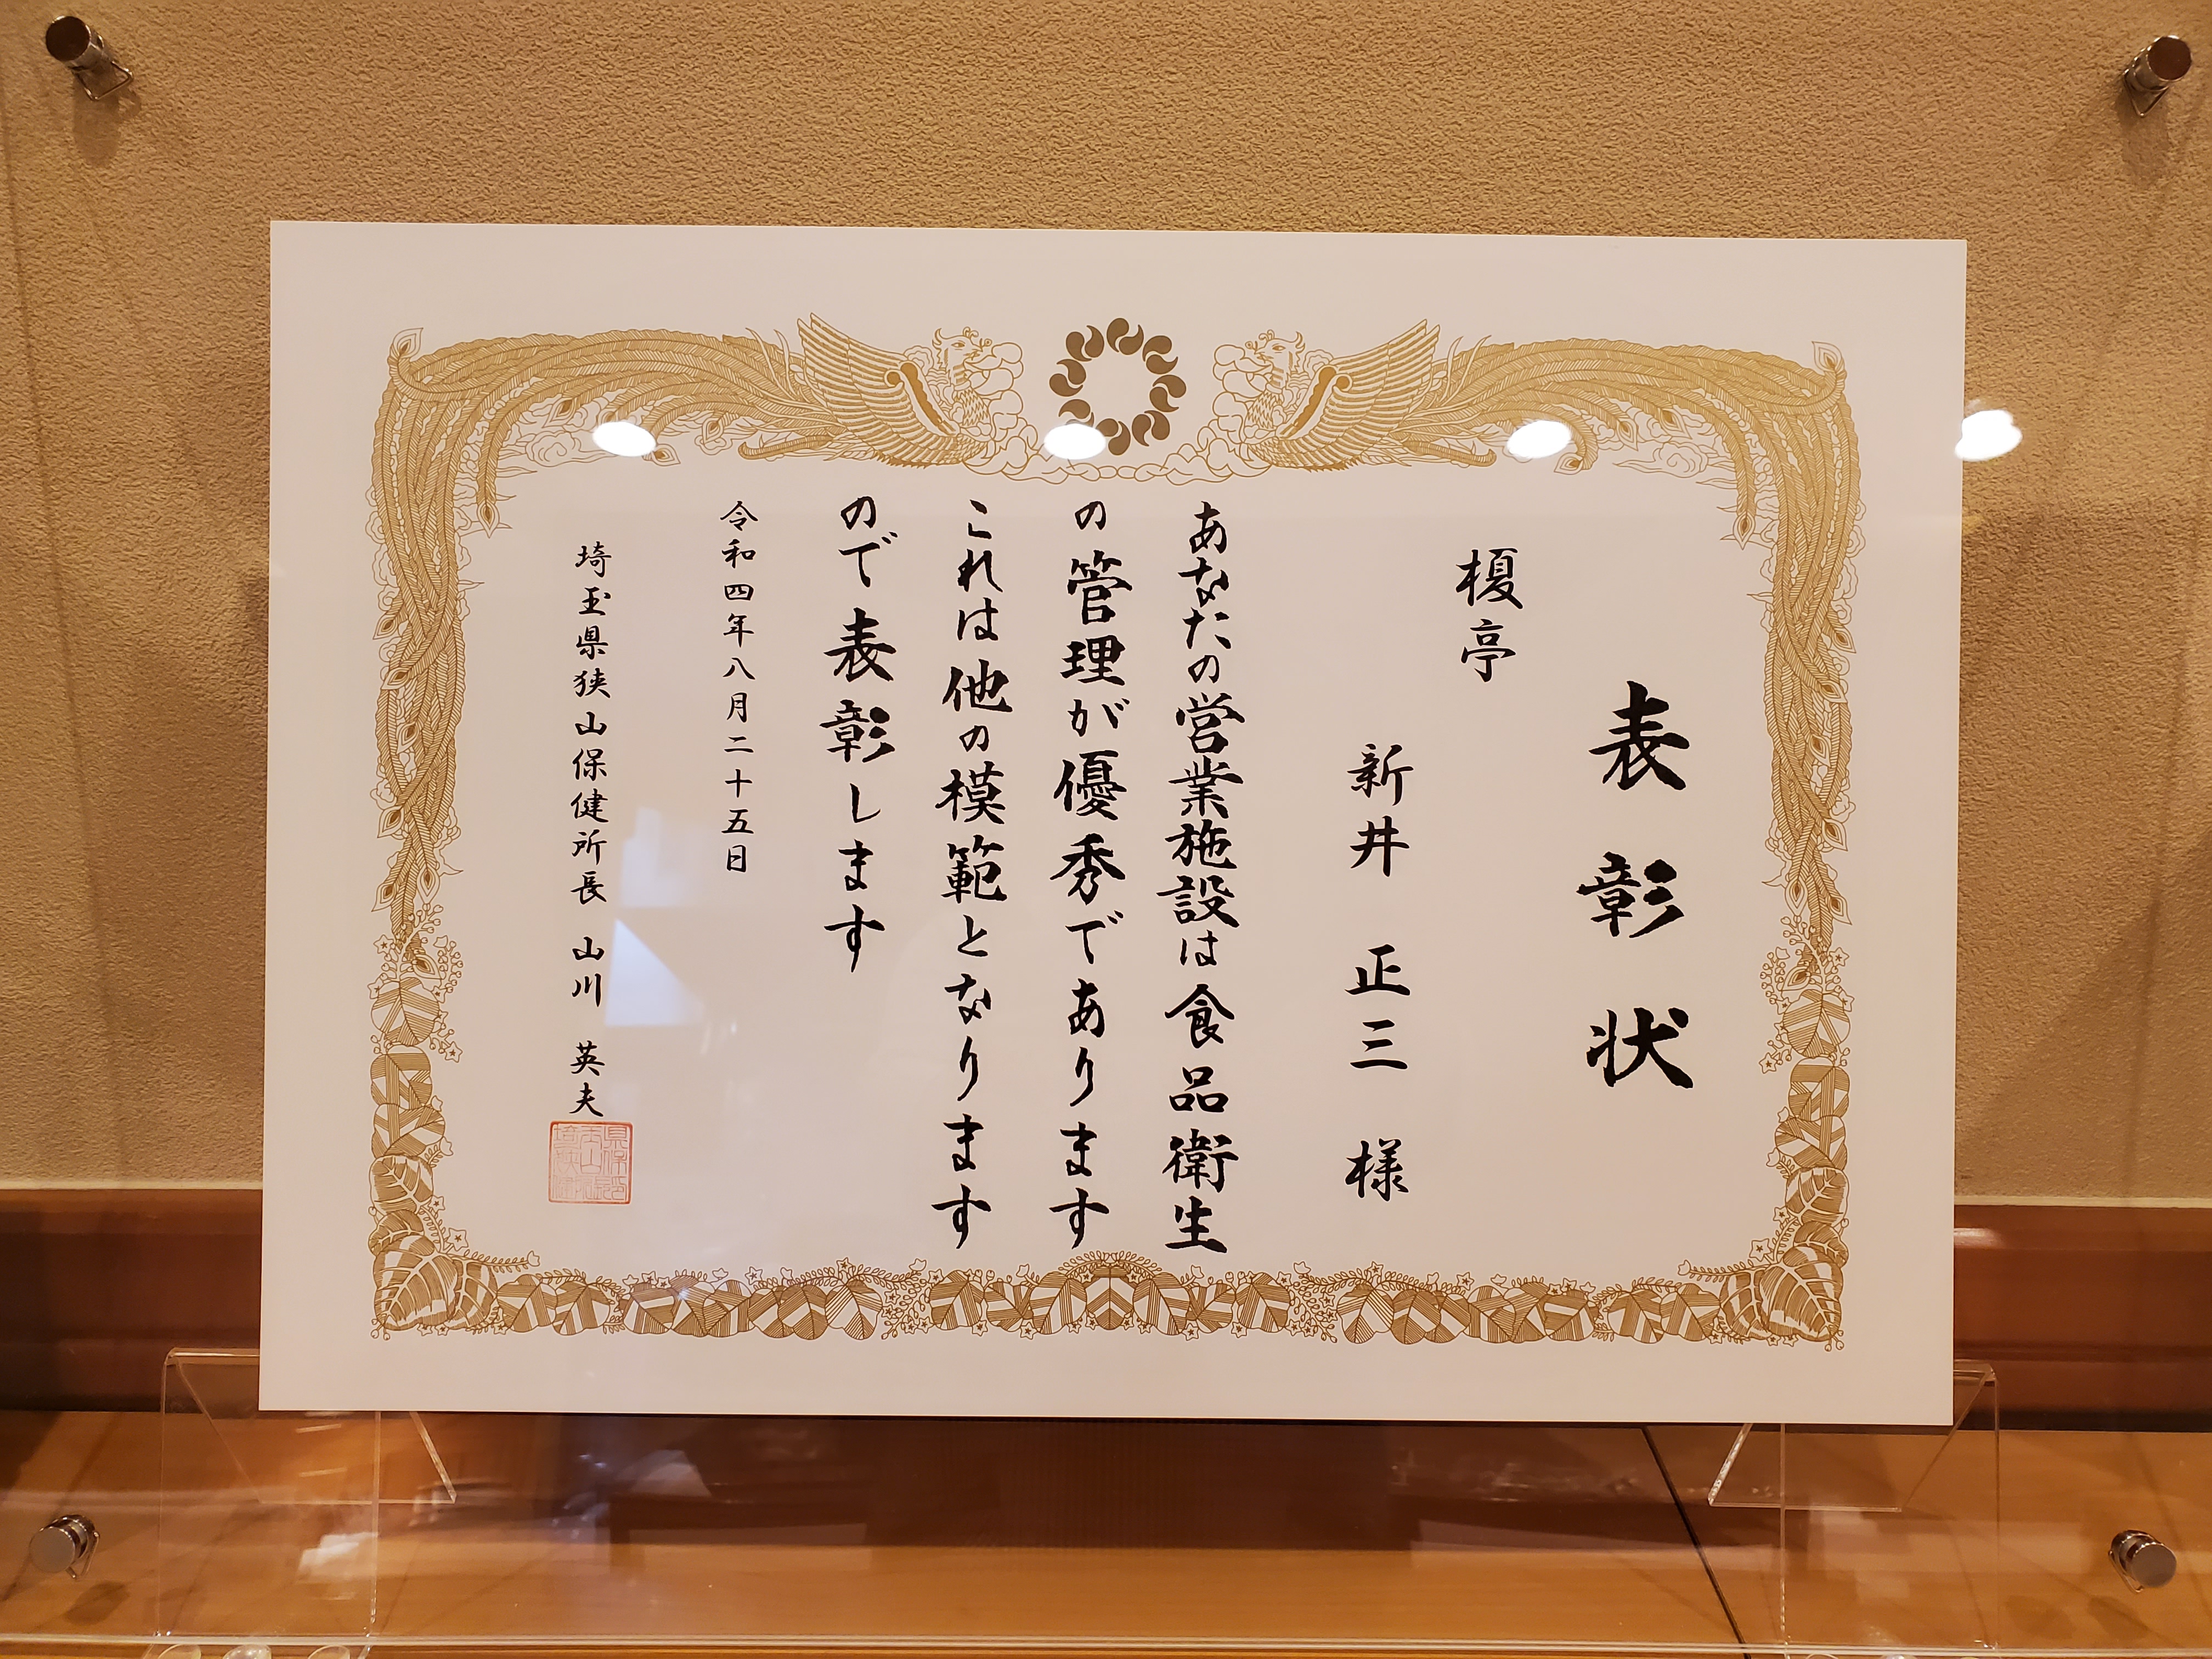 表彰状
榎亭
新井 正三 様
あなたの営業施設は食品衛生
の管理が優秀であります
これは他の模範となります
ので表彰します
令和四年八月二十五日
埼玉県狭山保健所長 山川 英夫